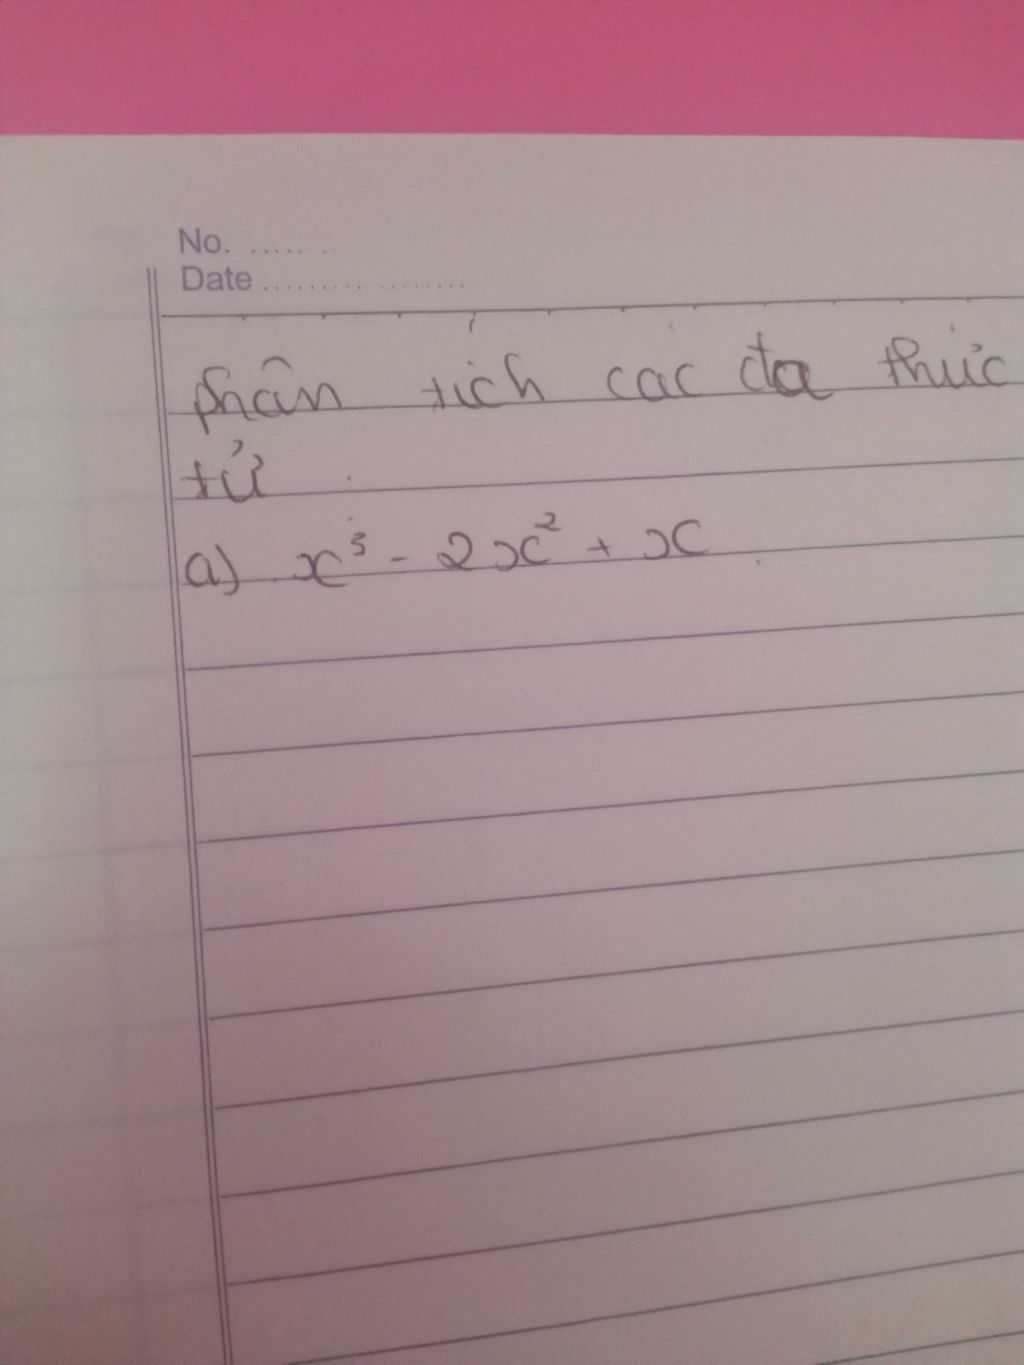 No. .......
Date .................
phân tích các đa thức
tử
a) x³ - 2x² + x